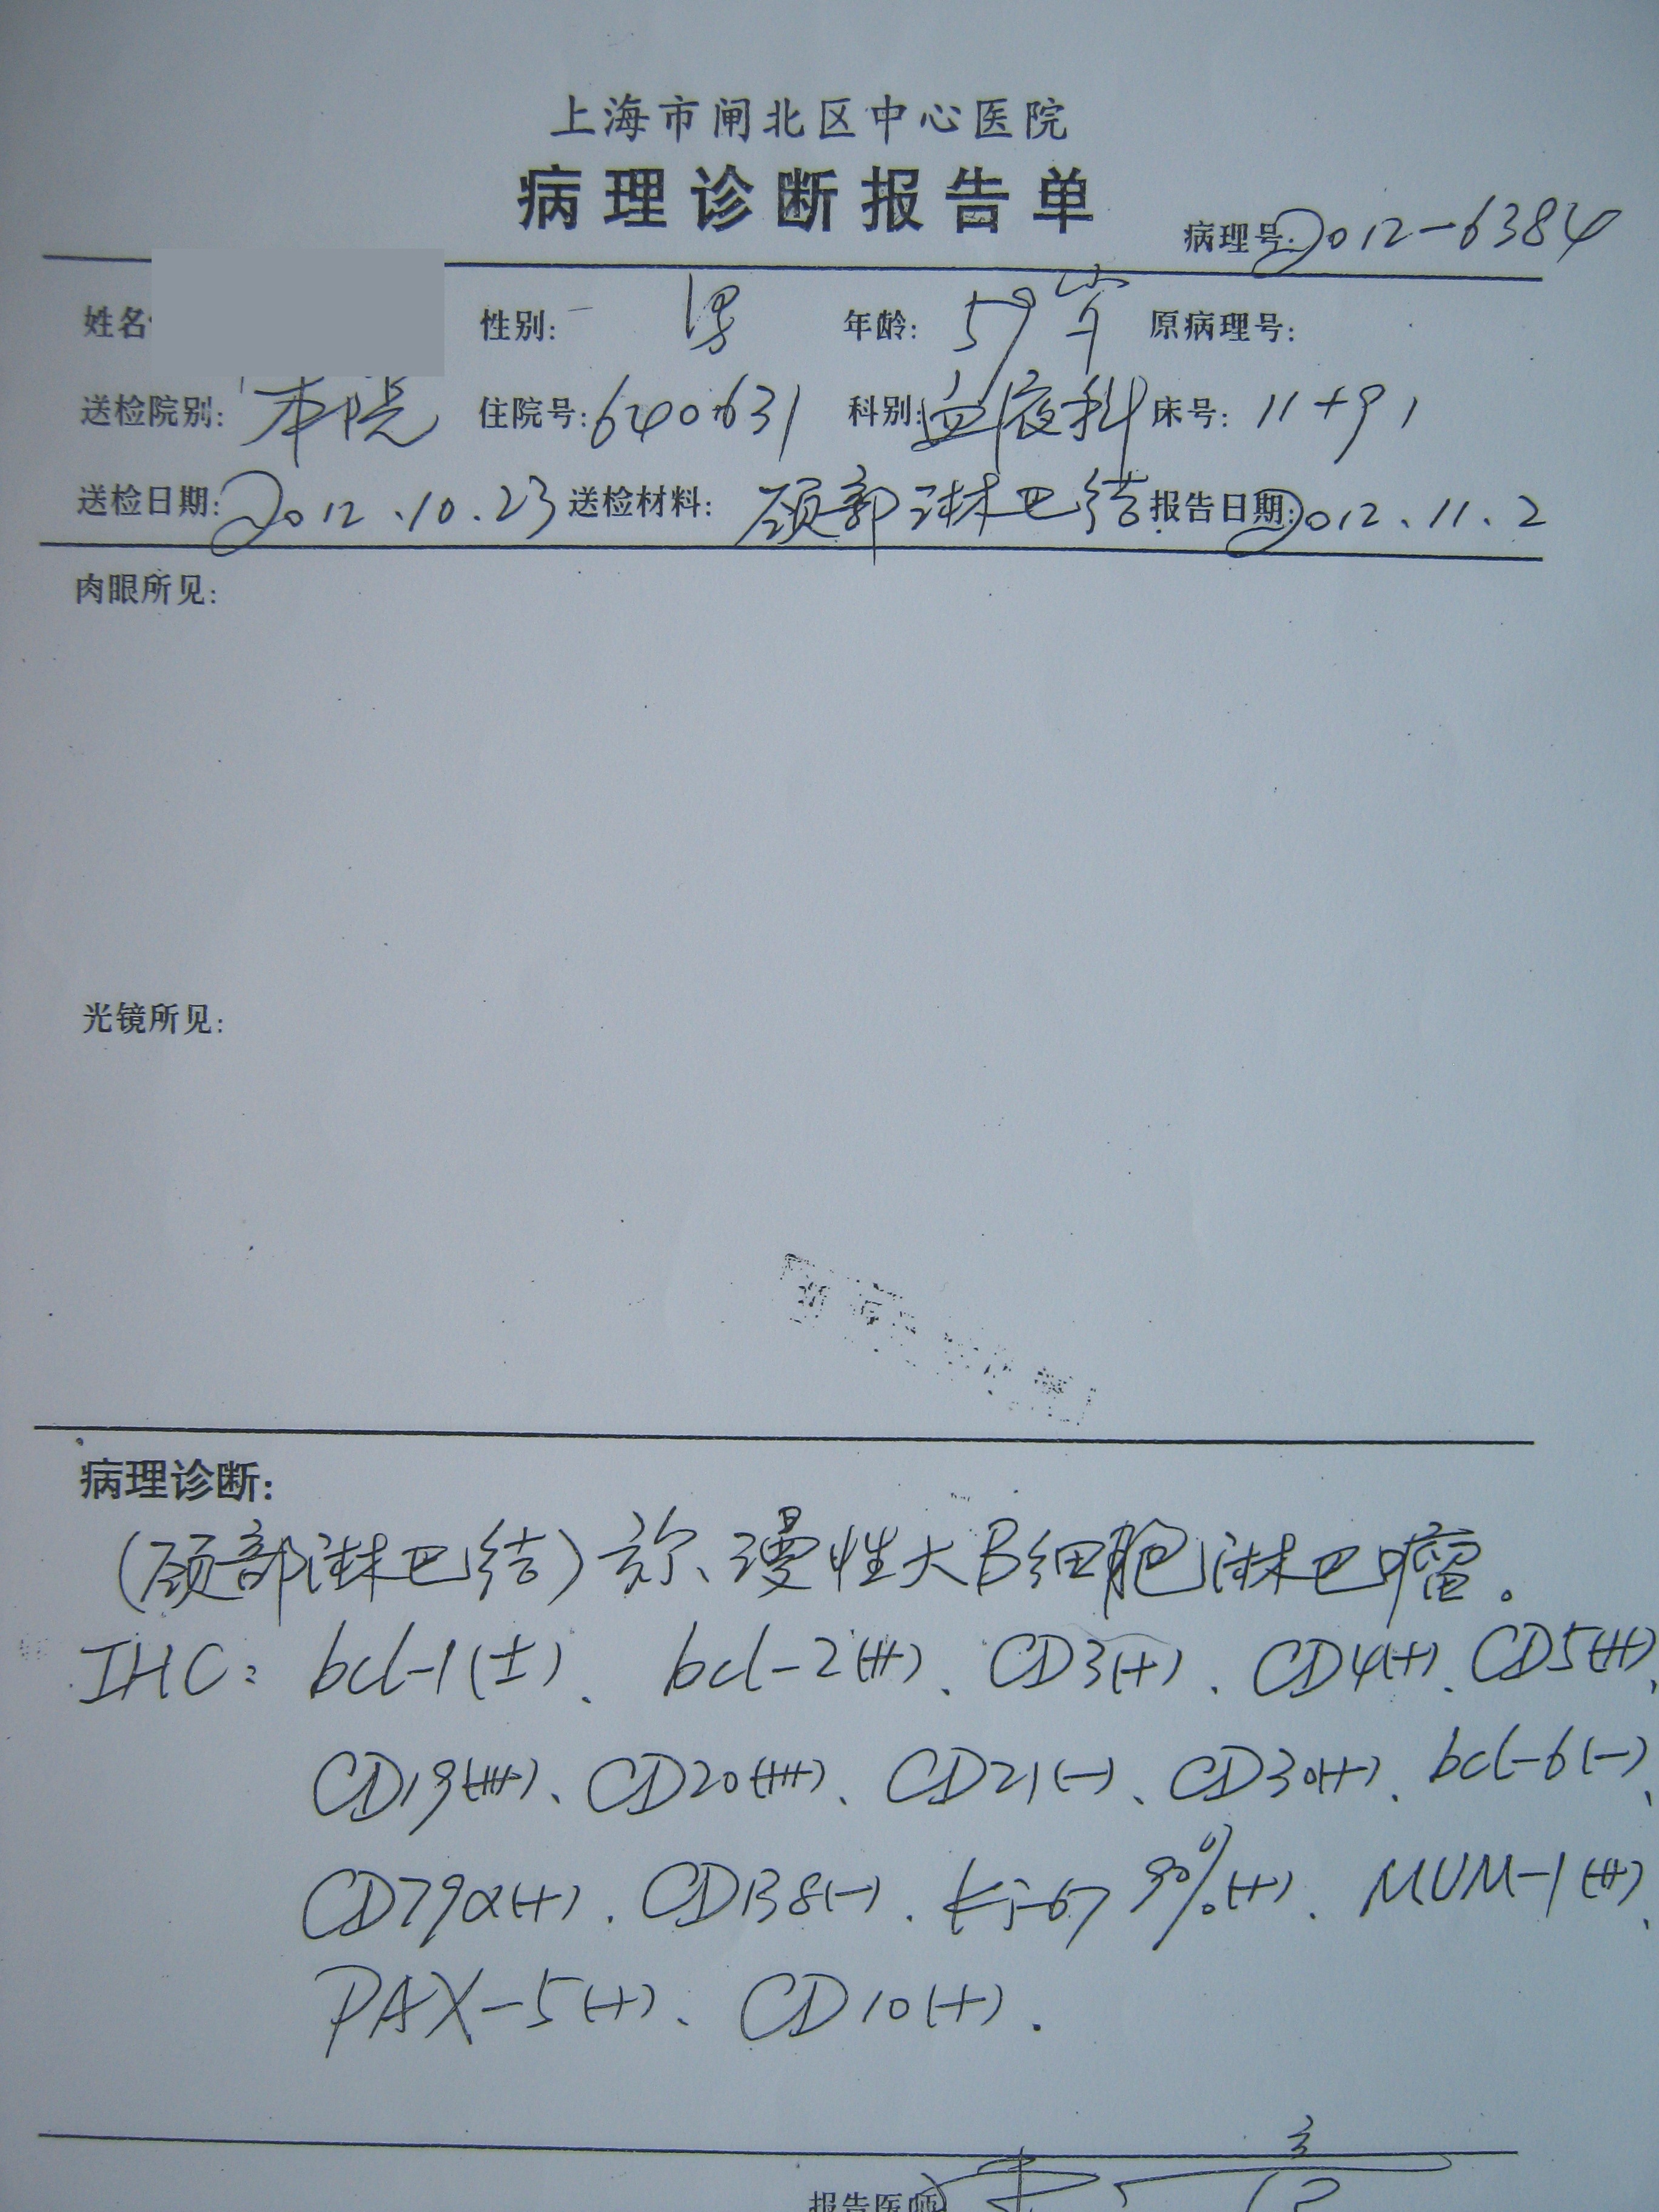 上海市闸北区中心医院
病理诊断报告单
病理号: 2012-6384
姓名 性别: 男 年龄: 59岁 原病理号:
送检院别: 本院 住院号: 640631 科别: 血液科 床号: 11+91
送检日期: 2012.10.23 送检材料: 颈部淋巴结 报告日期: 2012.11.2
肉眼所见:
光镜所见:
病理诊断:
(颈部淋巴结)弥漫性大B细胞淋巴瘤。
IHC: bcl-1(±)、bcl-2(++)、CD3(+)、CD4(+)、CD5(++)、
CD19(+++)、CD20(+++)、CD21(-)、CD30(+)、bcl-6(-)、
CD79α(+)、CD138(-)、Ki-67 90%(+)、MUM-1(++)、
PAX-5(+)、CD10(+).
报告医师